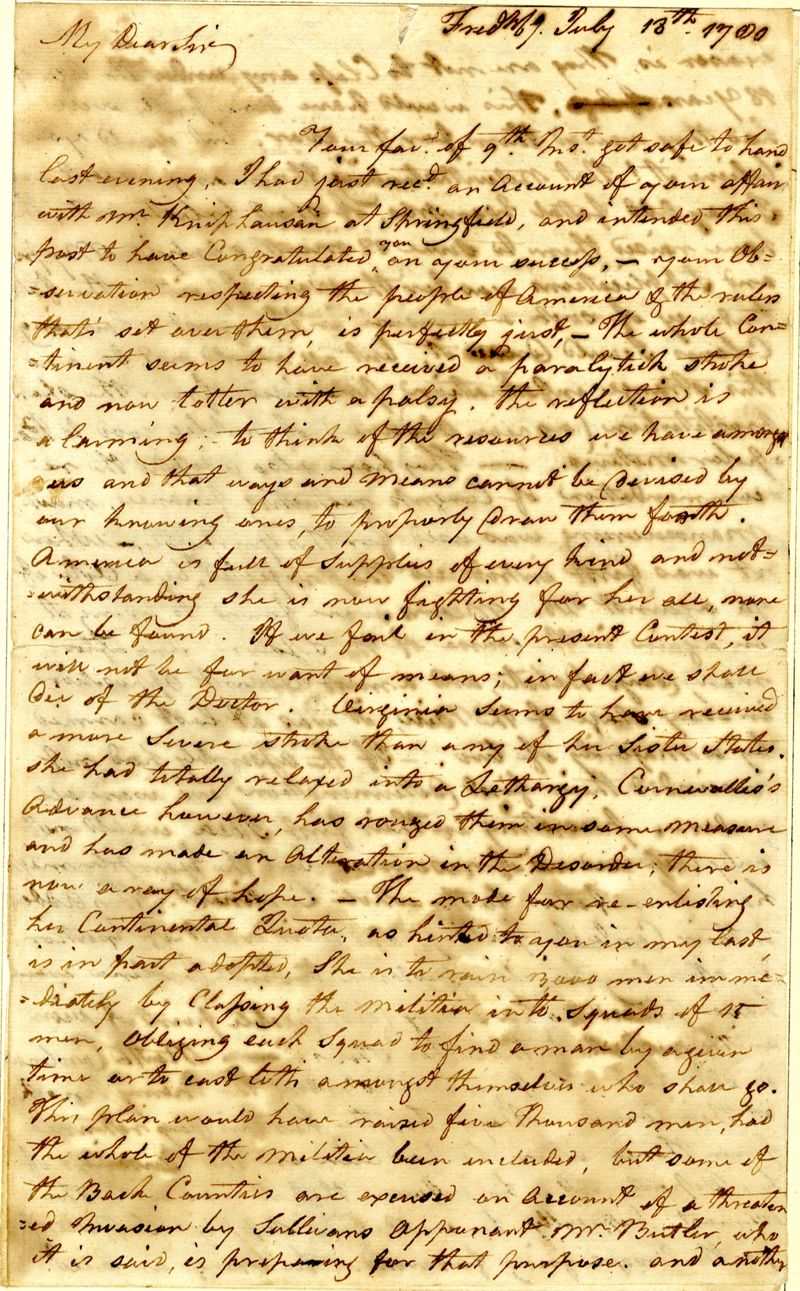 Fredkbg. July 13th. 1780
My Dear Sir
Your favr. of 9th. Inst. got safe to hand
last evening, I had just recd. an Account of your affair
with Mr. Kniphausan at Springfield, and intended this
post to have Congratulated you on your success, — your Ob=
=servation respecting the people of America & the rulers
that's set over them, is perfectly just, — The whole Con=
=tinent seems to have received a paralytick stroke
and now totter with a palsy. the reflection is
alarming; to think of the resources we have amongst
us and that ways and means cannot be Devised by
our knowing ones, to properly Draw them forth.
America is full of Supplies of every kind and not=
=withstanding she is now fighting for her all, none
can be found. If we fail in the present Contest, it
will not be for want of means; in fact we shall
Die of the Doctor. Virginia seems to have received
a more Severe stroke than any of her Sister States.
she had totally relaxed into a Lethargy, Cornwallis's
Advance however, has rouzed them in some measure
and has made an Alteration in the Disorder; there is
now a ray of hope. — The mode for re-enlisting
her Continental Quota, as hinted to you in my last,
is in part adopted, She is to rain 3,000 men imme=
=diately by Classing the militia into Squads of 15
men, Obliging each Squad to find a man by a given
time or to cast lotts amongst themselves who shall go.
This plan would have raised five Thousand men, had
the whole of the Militia been included, but some of
the Back Counties are excused on Account of a threaten
=ed Invasion by Sullivans Opponant Mr. Butler, who
it is said, is preparing for that purpose. and another